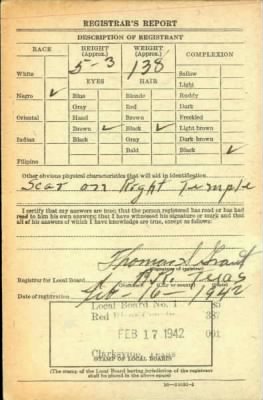 REGISTRAR'S REPORT
DESCRIPTION OF REGISTRANT
RACE HEIGHT (Approx.) WEIGHT (Approx.) COMPLEXION
5-3 138
White Sallow
EYES HAIR Light
Negro ✓ Blue Blonde Ruddy
Gray Red Dark
Oriental Hazel Brown Freckled
Brown ✓ Black ✓ Light brown
Indian Black Gray Dark brown
Bald Black ✓
Filipino
Other obvious physical characteristics that will aid in identification
Scar on Right Temple
I certify that my answers are true; that the person registered has read or has had
read to him his own answers; that I have witnessed his signature or mark and that
all of his answers of which I have knowledge are true, except as follows:
Thomas Grant
(Signature of registrar)
Registrar for Local Board Texas
(Number) (City or county) (State)
Date of registration Feb 16 - 1942
Local Board No. 1
Red
FEB 17 1942
Clarksville, Texas
(STAMP OF LOCAL BOARD)
(The stamp of the Local Board having jurisdiction of the registrant
shall be placed in the above space)